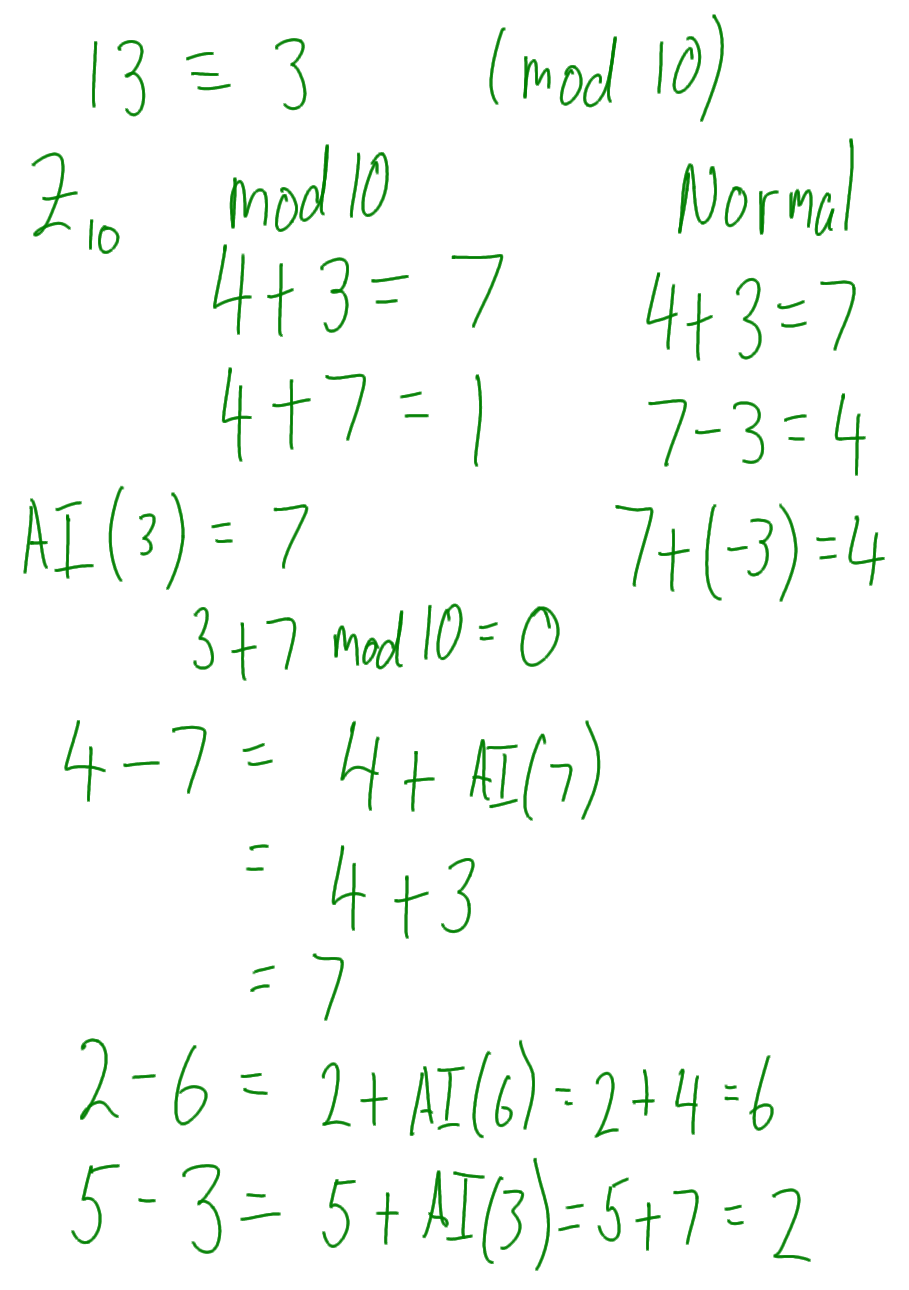 13 ≡ 3 (mod 10)
Z₁₀ mod 10 Normal
4 + 3 = 7 4 + 3 = 7
4 + 7 = 1 7 - 3 = 4
AI(3) = 7 7 + (-3) = 4
3 + 7 mod 10 = 0
4 - 7 = 4 + AI(7)
= 4 + 3
= 7
2 - 6 = 2 + AI(6) = 2 + 4 = 6
5 - 3 = 5 + AI(3) = 5 + 7 = 2